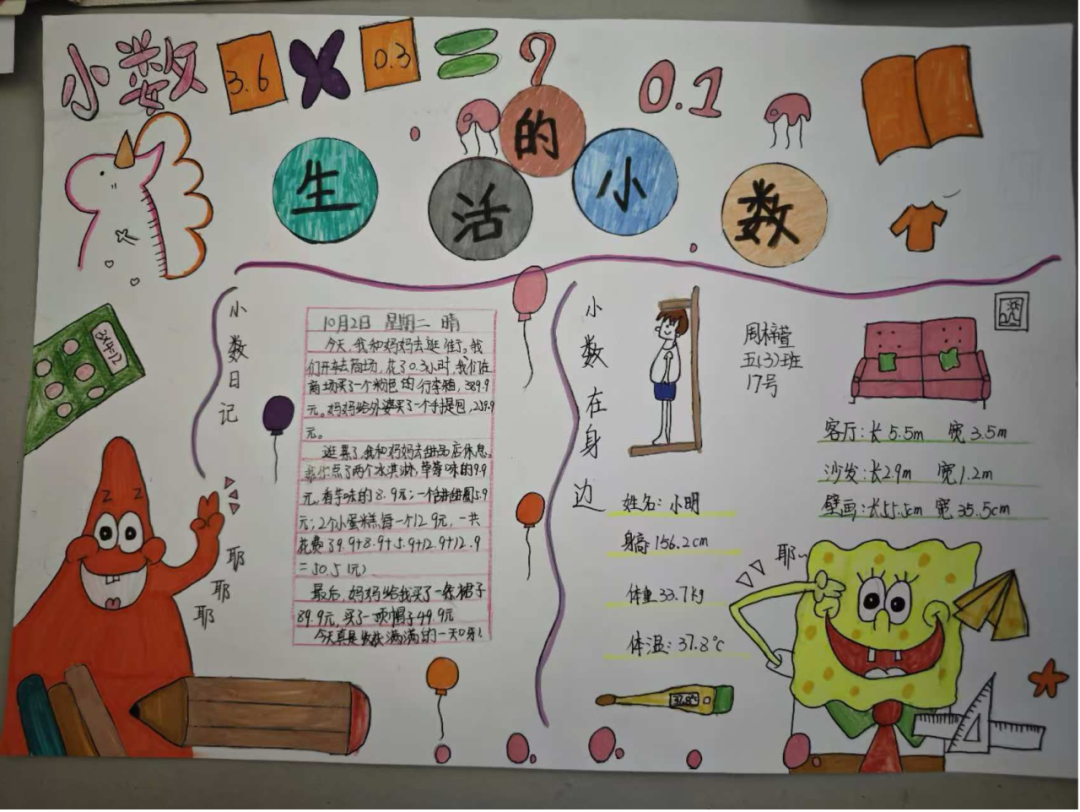 小数 3.6 × 0.3 = ?
0.1
生活的小数
3×4=12
小数日记
10月2日 星期二 晴
今天,我和妈妈去逛街。我
们开车去商场,花了0.3小时,我们在
商场买了一个粉色的行李箱,389.9
元。妈妈给外婆买了一个手提包,239.9
元。
逛累了,我和妈妈去甜品店休息,
点了两个冰淇淋,草莓味的9.9
元,香芋味的8.9元;一个甜甜圈5.9
元;2个小蛋糕,每一个12.9元,一共
花费39.9+8.9+5.9+12.9+12.9
=50.5(元)
最后,妈妈给我买了一条裙子
89.9元,买了一顶帽子49.9元
今天真是收获满满的一天呀!
小数在身边
五(3)班
17号
姓名:小明
身高:156.2cm
体重33.7kg
体温:37.8℃
37.8℃
客厅:长5.5m 宽3.5m
沙发:长2.9m 宽1.2m
壁画:长55.5cm 宽35.5cm
Z Z
耶
耶
耶
耶~